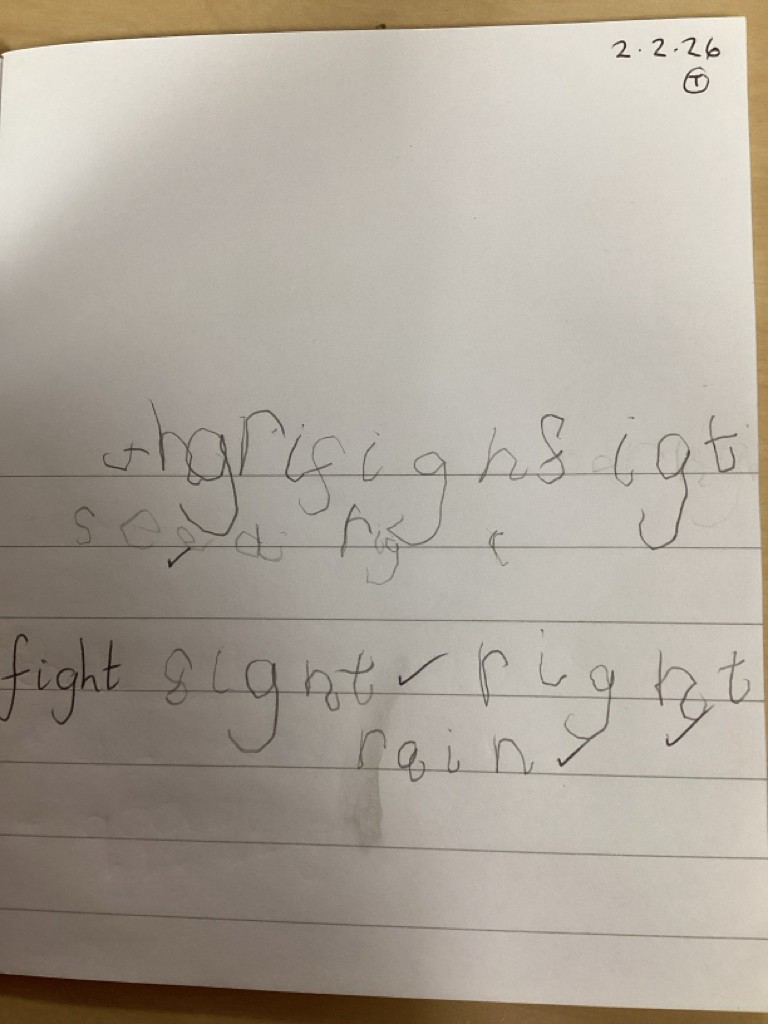 2.2.26
T
thgrifighs igt
seed rig
fight sight ✓ right
rain ✓